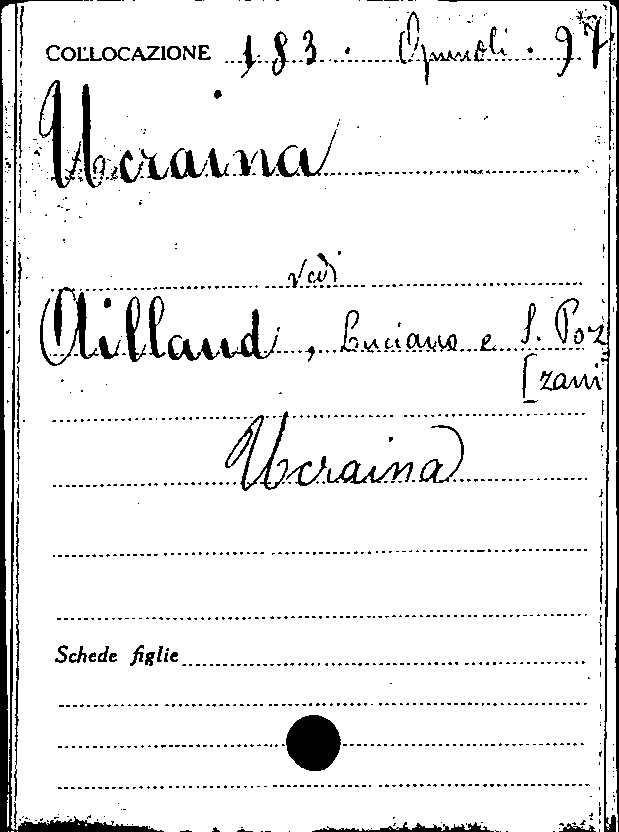 COLLOCAZIONE 183. Opuscoli. 97
Ucraina
vedi
Ailland, Luciano e S. Poz
[zani
Ucraina
Schede figlie